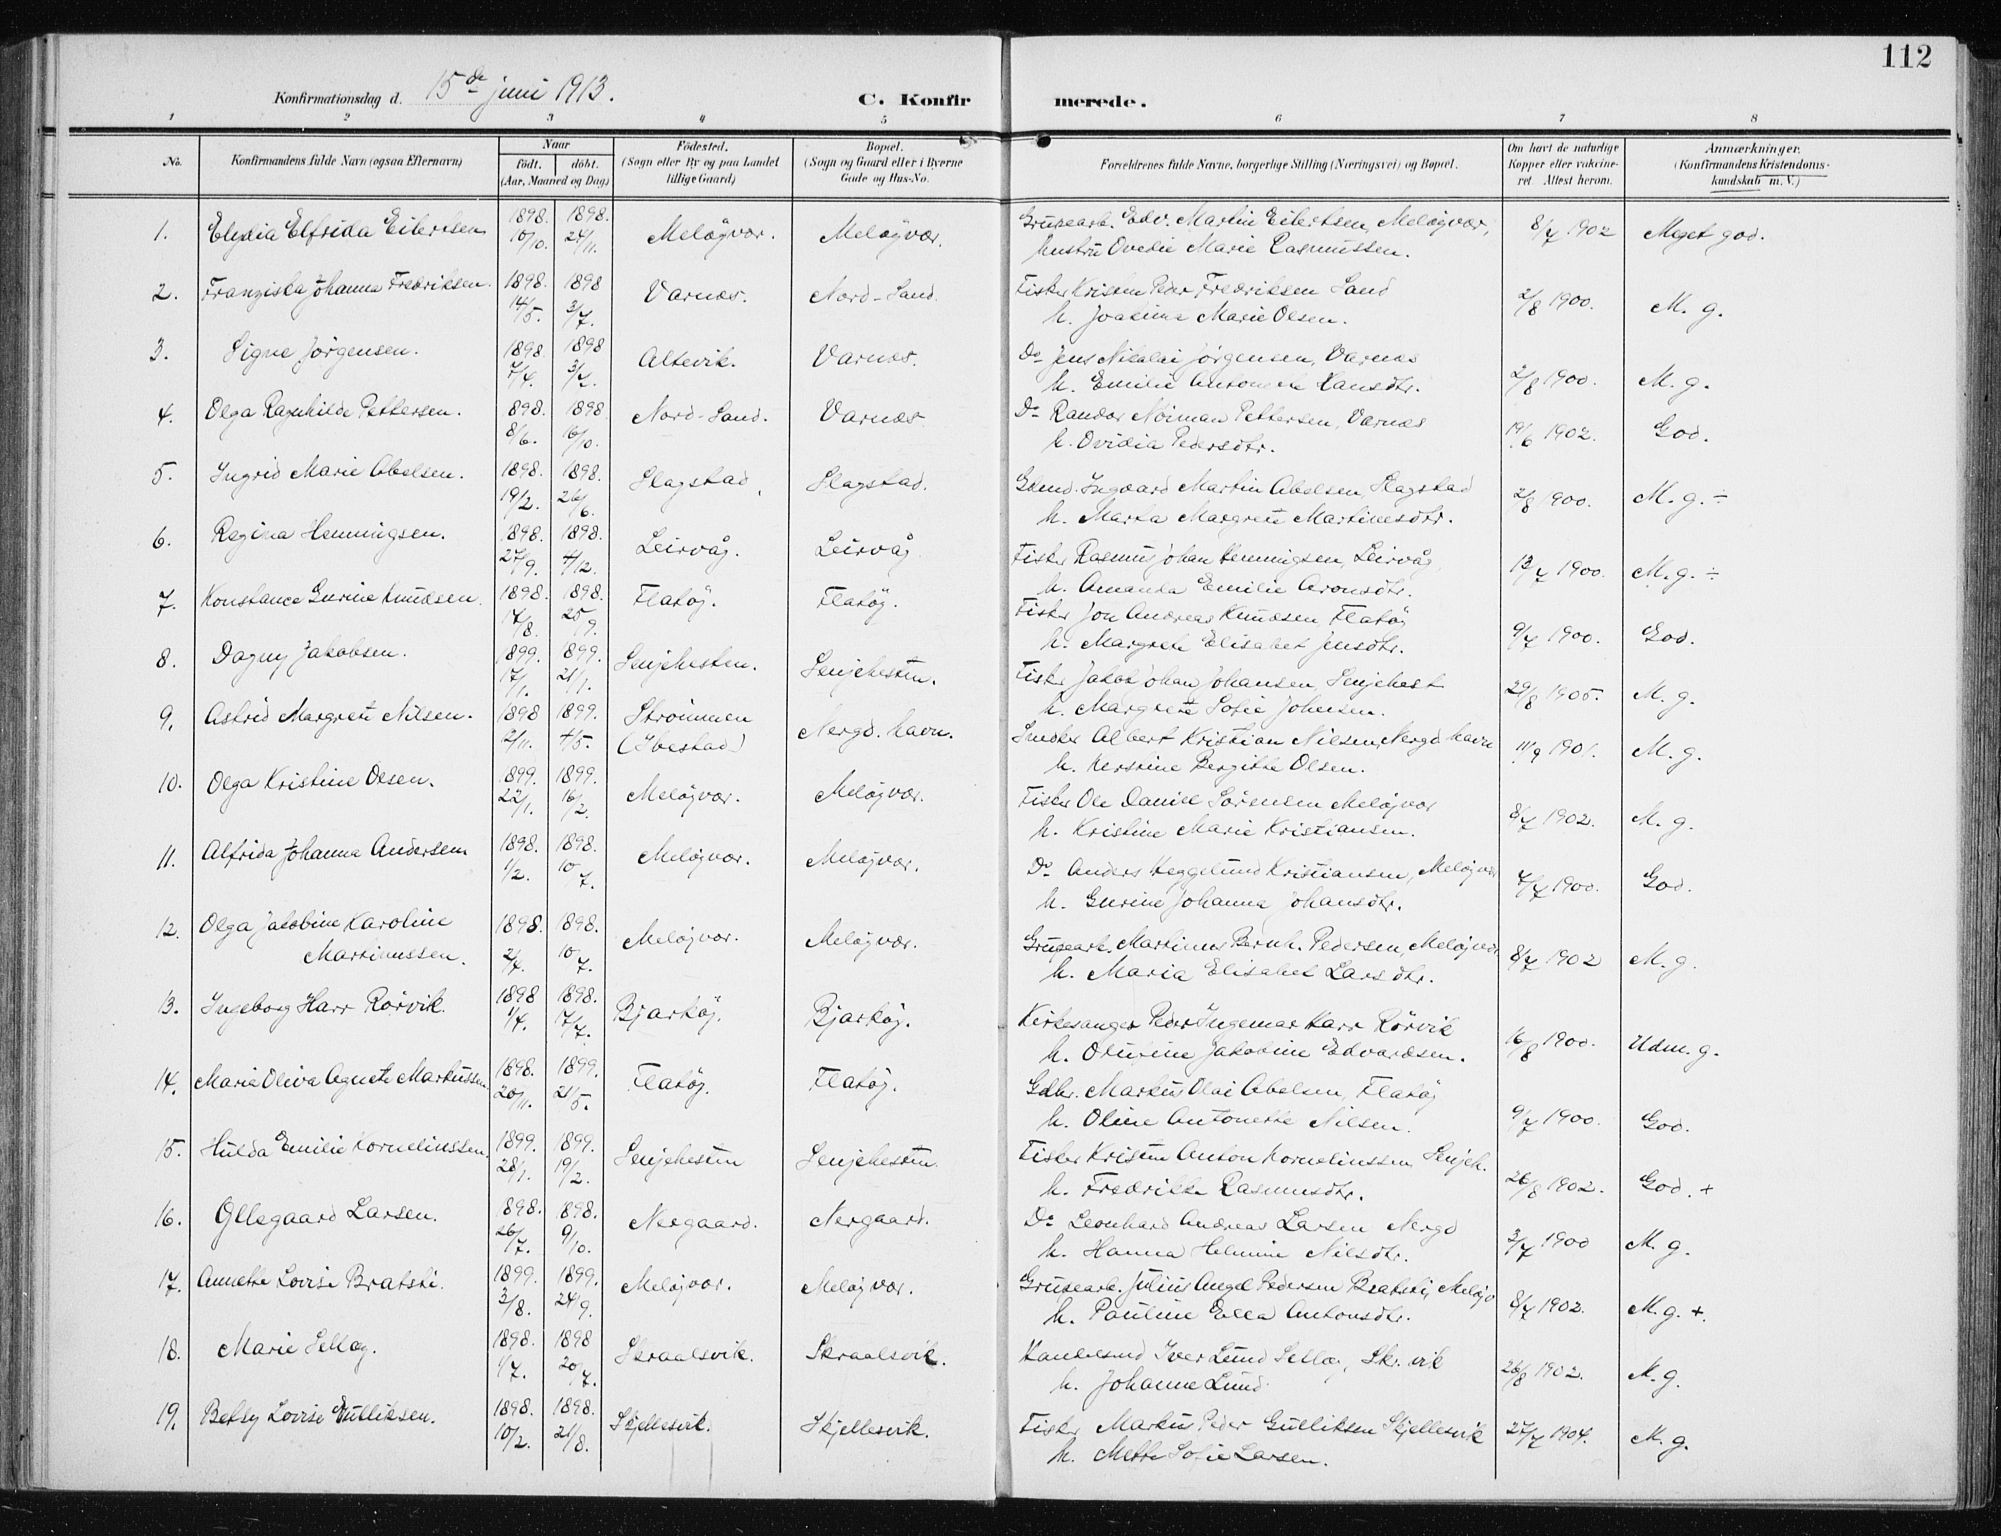 112
Konfirmationsdag d. 15de juni 1913.
C. Konfirmerede.
1 2 3 4 5 6 7 8
No. Konfirmandens fulde Navn (ogsaa Efternavn) Naar födt. döbt. (Aar, Maaned og Dag) Födested. (Sogn eller By og paa Landet tillige Gaard) Bopæl. (Sogn og Gaard eller i Byerne Gade og Hus-No. Forældrenes fulde Navne, borgerlige Stilling (Næringsvei) og Bopæl. Om havt de naturlige Kopper eller vaccineret. Attest herom. Anmærkninger. (Konfirmandens Kristendomskundskab m. V.)
1. Elydia Elfrida Eilertsen 1898. 10/10. 1898. 24/11. Meløyvær. Meløyvær. Grubearb. Edv. Martin Eilertsen, Meløyvær, 8/7 1902 Meget god.
hustru Ovedie Marie Rasmussen.
2. Franziska Johanna Fredriksen. 1898. 14/5. 1898 3/7. Varnæs. Nord-Sand. Fisker Kristen Peder Fredriksen Sand 2/8 1900. M. g.
h. Joakima Marie Olsen.
3. Signe Jörgensen. 1898. 7/4. 1898 3/7. Altevik. Varnæs. Do Jens Nikolai Jørgensen, Varnæs 2/8 1900. M. g.
h. Emilie Antomine Hansdtr.
4. Olga Ragnhilde Pettersen. 898. 8/6. 1898 16/10. Nord-Sand. Varnæs Do Randor Nøiman Pettersen, Varnæs 19/6 1902. God.
h. Ovidia Pedersdtr.
5. Ingrid Marie Abelsen. 1898. 19/2. 1898. 26/6. Slagstad, Slagstad. Gdmd. Ingvard Martin Abelsen, Slagstad 2/8 1900. M. g. ÷
h. Marta Margrete Martinusdtr.
6. Regina Henningsen. 1898. 27/9. 1898. 4/12. Leirvåg. Leirvåg Fisker Rasmus Johan Henningsen, Leirvåg, 13/7 1900. M. g. ÷
h. Amanda Emilie Aronsdtr.
7. Konstance Gurine Knudsen. 1898. 17/8. 1898. 25/9. Flatøy. Flatøy. Fisker Jon Andreas Knudsen, Flatøy 9/7 1900. God.
h. Margrete Elisabet Jensdtr.
8. Dagny Jakobsen. 1899. 17/1. 1899. 21/1. Senjehesten. Senjehesten. Fisker Jakob Johan Johansen, Senjehest 29/8 1905. M. g.
h. Margrete Sofie Johnsen.
9. Astrid Margrete Nilsen. 1898 2/11. 1899. 4/5. Strömmen (Ibestad) Nergd. havn. Snedker Albert Kristian Nilsen, Nergd havn 11/9 1901. M. g.
h. Kerstine Bergitte Olsen.
10. Olga Kristine Olsen. 1899. 22/1. 1899. 16/2. Meløyvær. Meløyvær. Fisker Ole Daniel Sørensen Meløyvær 8/7 1902. M. g.
h. Kristine Marie Kristiansen.
11. Alfrida Johanna Andersen 1898. 1/2. 1898. 10/7. Meløyvær. Meløyvær. Do Anders Heggelund Kristiansen, Meløyvær 4/7 1900. God.
h. Gurine Johanna Johansdtr.
12. Olga Jakobine Karoline Martinussen. 1898. 2/7. 1898. 10/7. Meløyvær. Meløyvær. Grubearb. Martinus Bernh. Pedersen, Meløyvær 8/7 1902 M. g.
h. Maria Elisabet Larsdtr.
13. Ingeborg Harr Rörvik. 1898 1/4. 1898. 17/7. Bjarkøy. Bjarkøy. Kirkesanger Peder Ingemar Harr Rörvik 16/8 1900. Udm. g.
h. Olufine Jakobine Edvardsen.
14. Marie Oliva Agnete Markussen 1898. 20/11. 1899. 21/5. Flatøy. Flatøy. Gdbr. Markus Olai Abelsen, Flatøy 9/7 1900. God.
h. Oline Antonette Nilsen.
15. Hulda Emilie Korneliussen. 1899. 28/1. 1899. 19/2. Senjehesten Senjehesten. Fisker Kristen Anton Korneliussen Senjeh. 26/8 1902. God. +
h. Fredrikke Rasmusdtr.
16. Ollegaard Larsen. 898. 26/7. 1898. 9/10. Nergaard. Nergaard. Do Leonhard Andreas Larsen Nergd 3/7 1900 M. g.
h. Hanna Helmine Nilsdtr.
17. Annette Lovise Bratsti. 1899. 3/8. 1899. 24/9. Meløyvær. Meløyvær. Grubearb. Julius Angel Pedersen Bratsti, Meløyv 8/7 1902. M. g. +.
h. Pauline Ella Antonsdtr.
18. Marie Selløg. 1898. 1/7. 1898 20/7. Skraalsvik. Skraalsvik. Handelsmd Iver Lund Selløg, Skr. vik 26/8 1902. M. g.
h. Johanne Lund.
19. Betsy Lovise Gulliksen. 1898. 10/2. 1898. 21/8. Skjellesvik. Skjellesvik. Fisker Markus Peder Gulliksen Skjellesvik 27/7 1904. M. g.
h. Mette Sofie Larsen.